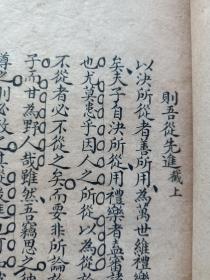 則吾從先進 截上
以決所從者善所用為萬世維禮
矣夫子自決所從用禮樂者益審
也尤莫患乎因人之所從以為從
不從者必不從之矣而要非所論
子而甘為野人哉雖然吾竊思之